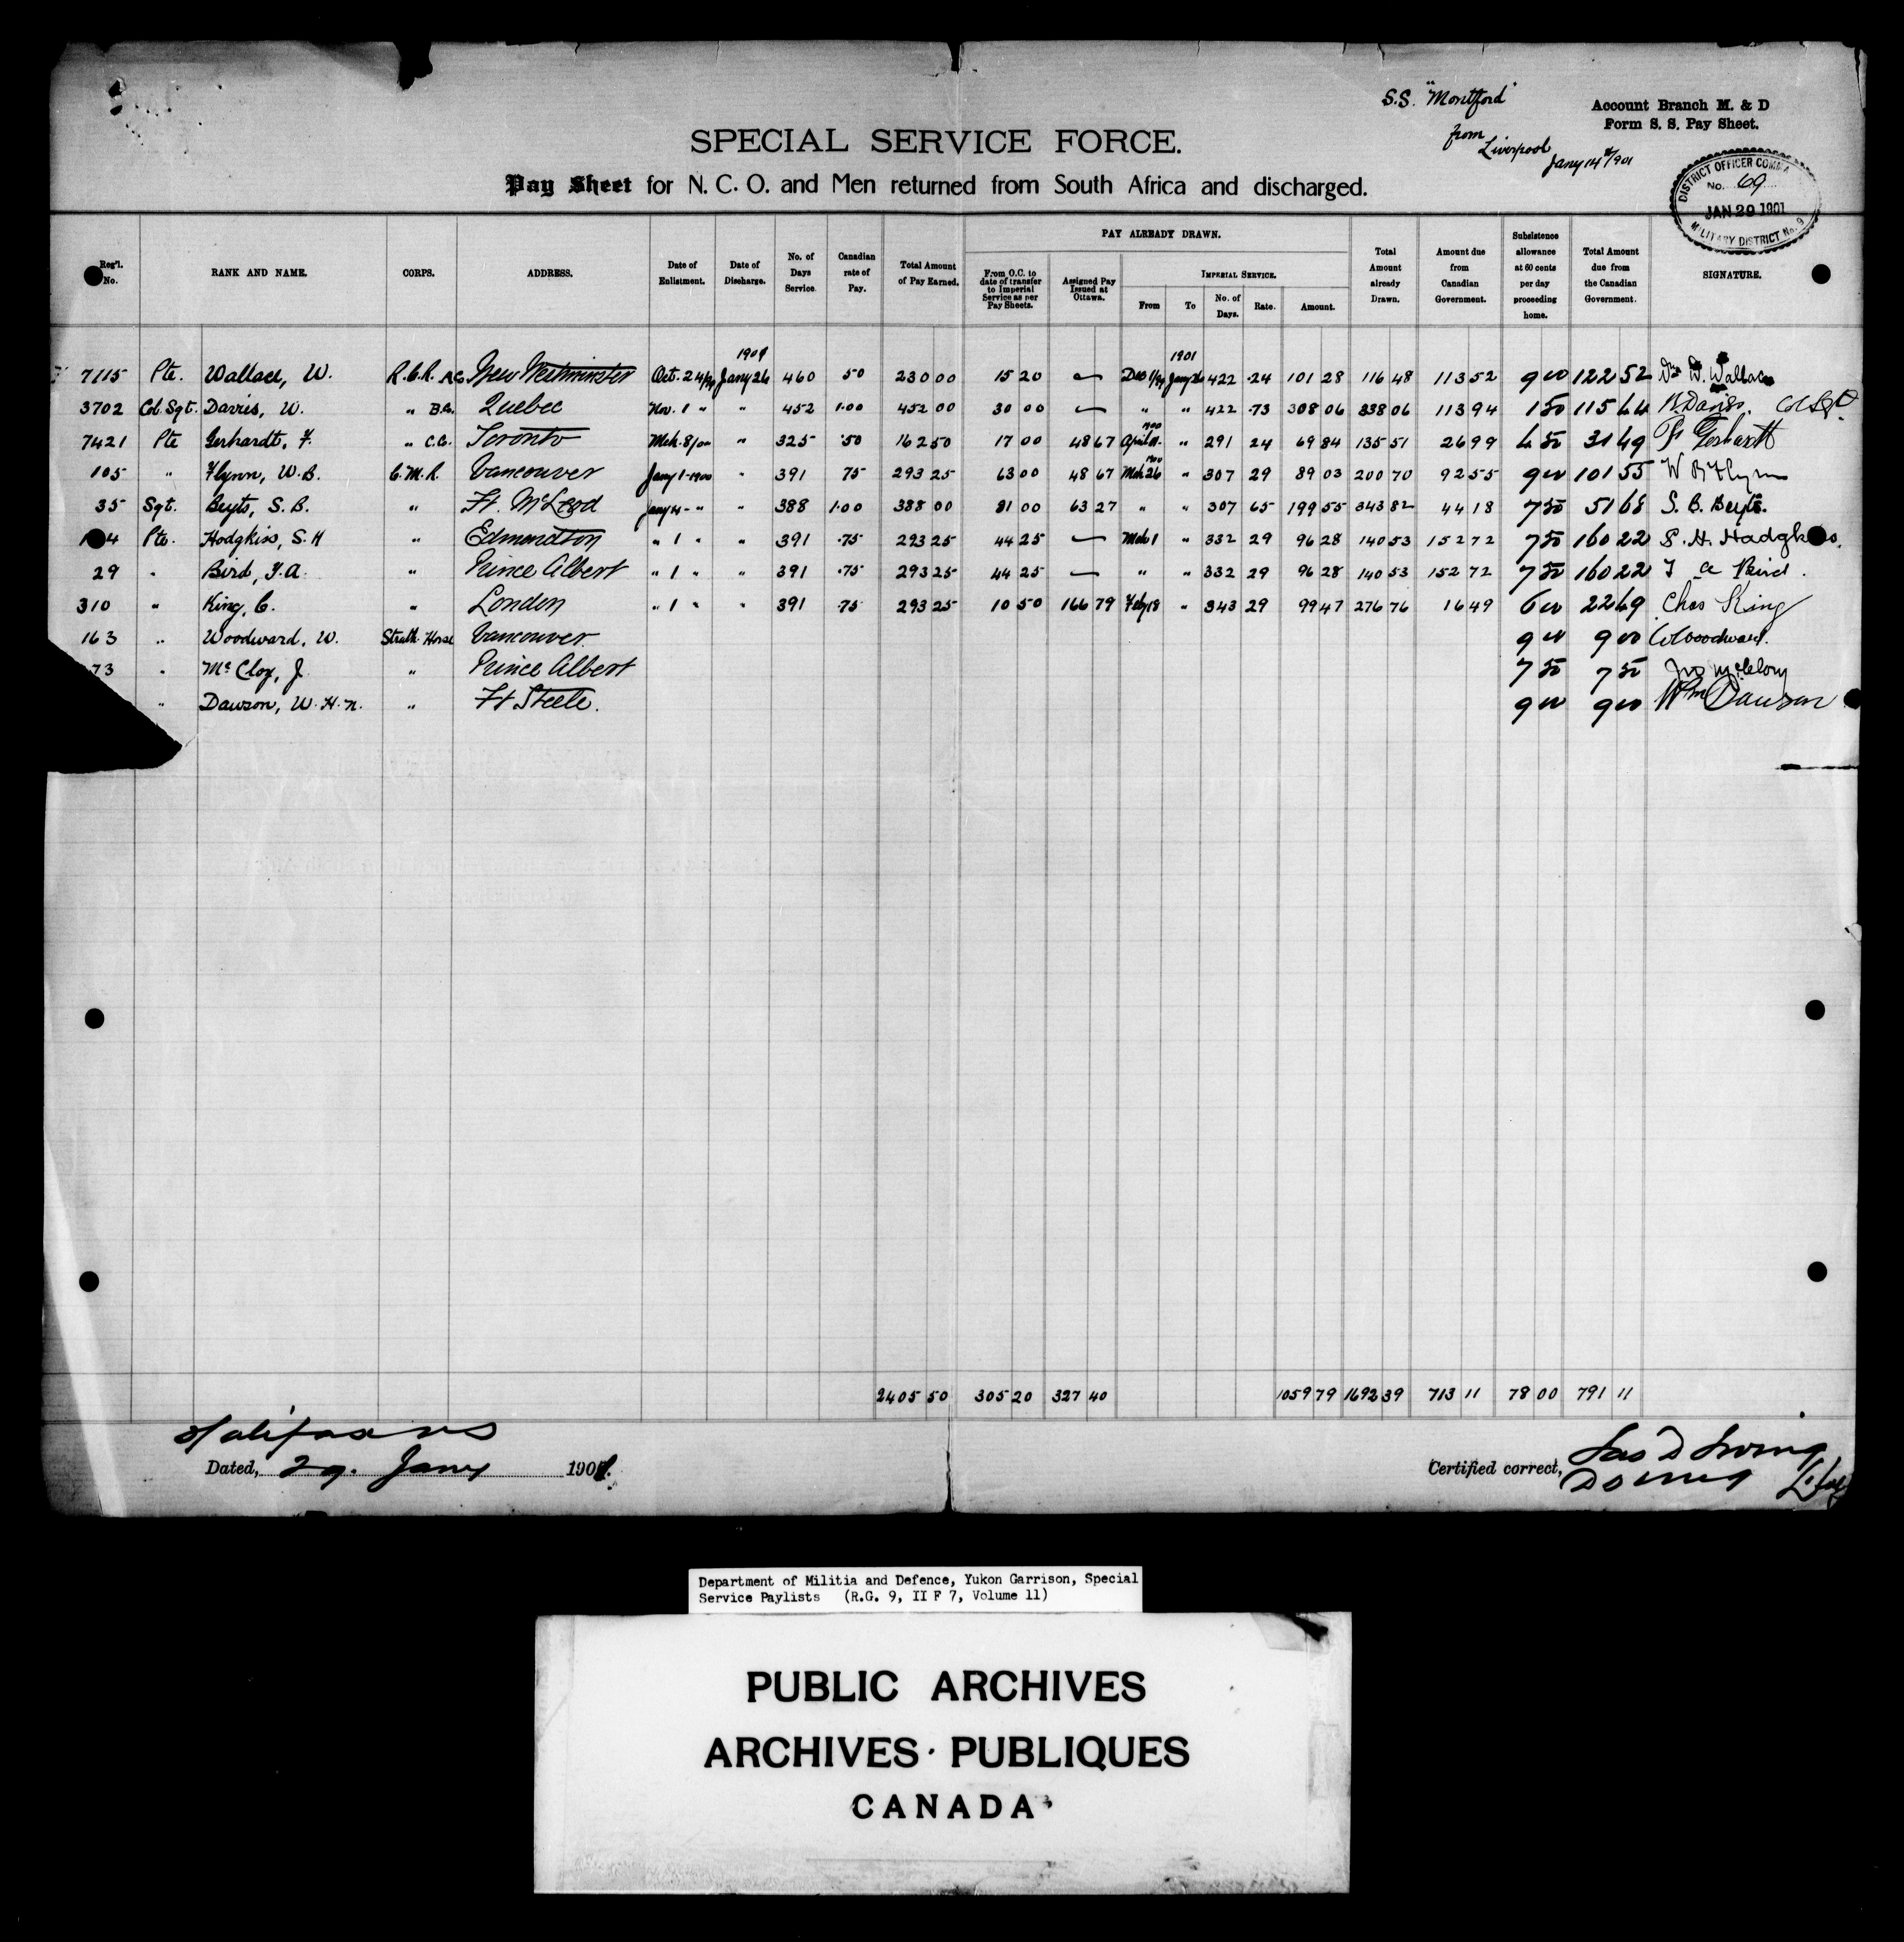 S.S. "Montford"
from
Liverpool
Jany 14th/901
Account Branch M. & D
Form S. S. Pay Sheet.
SPECIAL SERVICE FORCE.
Pay Sheet for N. C. O. and Men returned from South Africa and discharged.
DISTRICT OFFICER COMMA
No. 69
JAN 29 1901
MILITARY DISTRICT No. 9
Reg'l. No. RANK AND NAME. CORPS. ADDRESS. Date of Enlistment. Date of Discharge. No. of Days Service. Canadian rate of Pay. Total Amount of Pay Earned. PAY ALREADY DRAWN. From O.C. to date of transfer to Imperial Service as per Pay Sheets. Assigned Pay Issued at Ottawa. IMPERIAL SERVICE. From To No. of Days. Rate. Amount. Total Amount already Drawn. Amount due from Canadian Government. Subsistence allowance at 60 cents per day proceeding home. Total Amount due from the Canadian Government. SIGNATURE.
1901 1901
7115 Pte. Wallace, W. R.C.R. A.C. New Westminster Oct. 24/99 Jany 26 460 50 230 00 15 20 — Dec 1/99 Jany 26 422 .24 101 28 116 48 113 52 9 00 122 52 W. Wallace
3702 Col. Sgt. Davis, W. " B.C. Quebec Nov. 1 " " 452 1.00 452 00 30 00 — " " 422 .73 308 06 338 06 113 94 1 50 115 44 W. Davis. Col Sgt
7421 Pte Gerhardt, F. " C.C. Toronto Mch. 8/00 " 325 .50 162 50 17 00 48 67 1900 April 11 " 291 24 69 84 135 51 26 99 4 50 31 49 F. Gerhardt
105 " Flynn, W.B. C.M.R. Vancouver Jany 1-1900 " 391 75 293 25 63 00 48 67 1900 Mch 26 " 307 29 89 03 200 70 92 55 9 00 101 55 W B Flynn
35 Sgt. Beyts, S.B. " Ft. McLeod Jany 4 - " " 388 1.00 388 00 81 00 63 27 " " 307 65 199 55 343 82 44 18 7 50 51 68 S. B. Beyts.
4 Pte. Hodgkiss, S.H " Edmondton " 1 " " 391 .75 293 25 44 25 — Mch 1 " 332 29 96 28 140 53 152 72 7 50 160 22 S. H. Hodgkiss,
29 " Bird, F.A. " Prince Albert " 1 " " 391 .75 293 25 44 25 — " " 332 29 96 28 140 53 152 72 7 50 160 22 F a Bird.
310 " King, C. " London " 1 " " 391 .75 293 25 10 50 166 79 Feby 18 " 343 29 99 47 276 76 16 49 6 00 22 49 Chas King
163 " Woodward, W. Strath Horse Vancouver. 9 00 9 00 W Woodward.
73 " McCloy, J " Prince Albert 7 50 7 50 Jno McCloy
" Dawson, W.H.N. " Ft Steele. 9 00 9 00 Wm Dawson
2405 50 305 20 327 40 1059 79 1692 39 713 11 78 00 791 11
Halifax NS
Dated, 29. Jany 1901.
Certified correct,
Department of Militia and Defence, Yukon Garrison, Special
Service Paylists (R.G. 9, II F 7, Volume 11)
PUBLIC ARCHIVES
ARCHIVES PUBLIQUES
CANADA